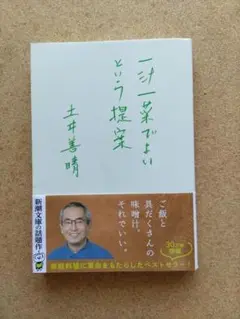 一汁一菜でよい
という提案
土井善晴
ご飯と
具だくさんの
味噌汁。
それでいい。
30万部
突破
新潮文庫の話題作!
家庭料理に革命をもたらしたベストセラー!